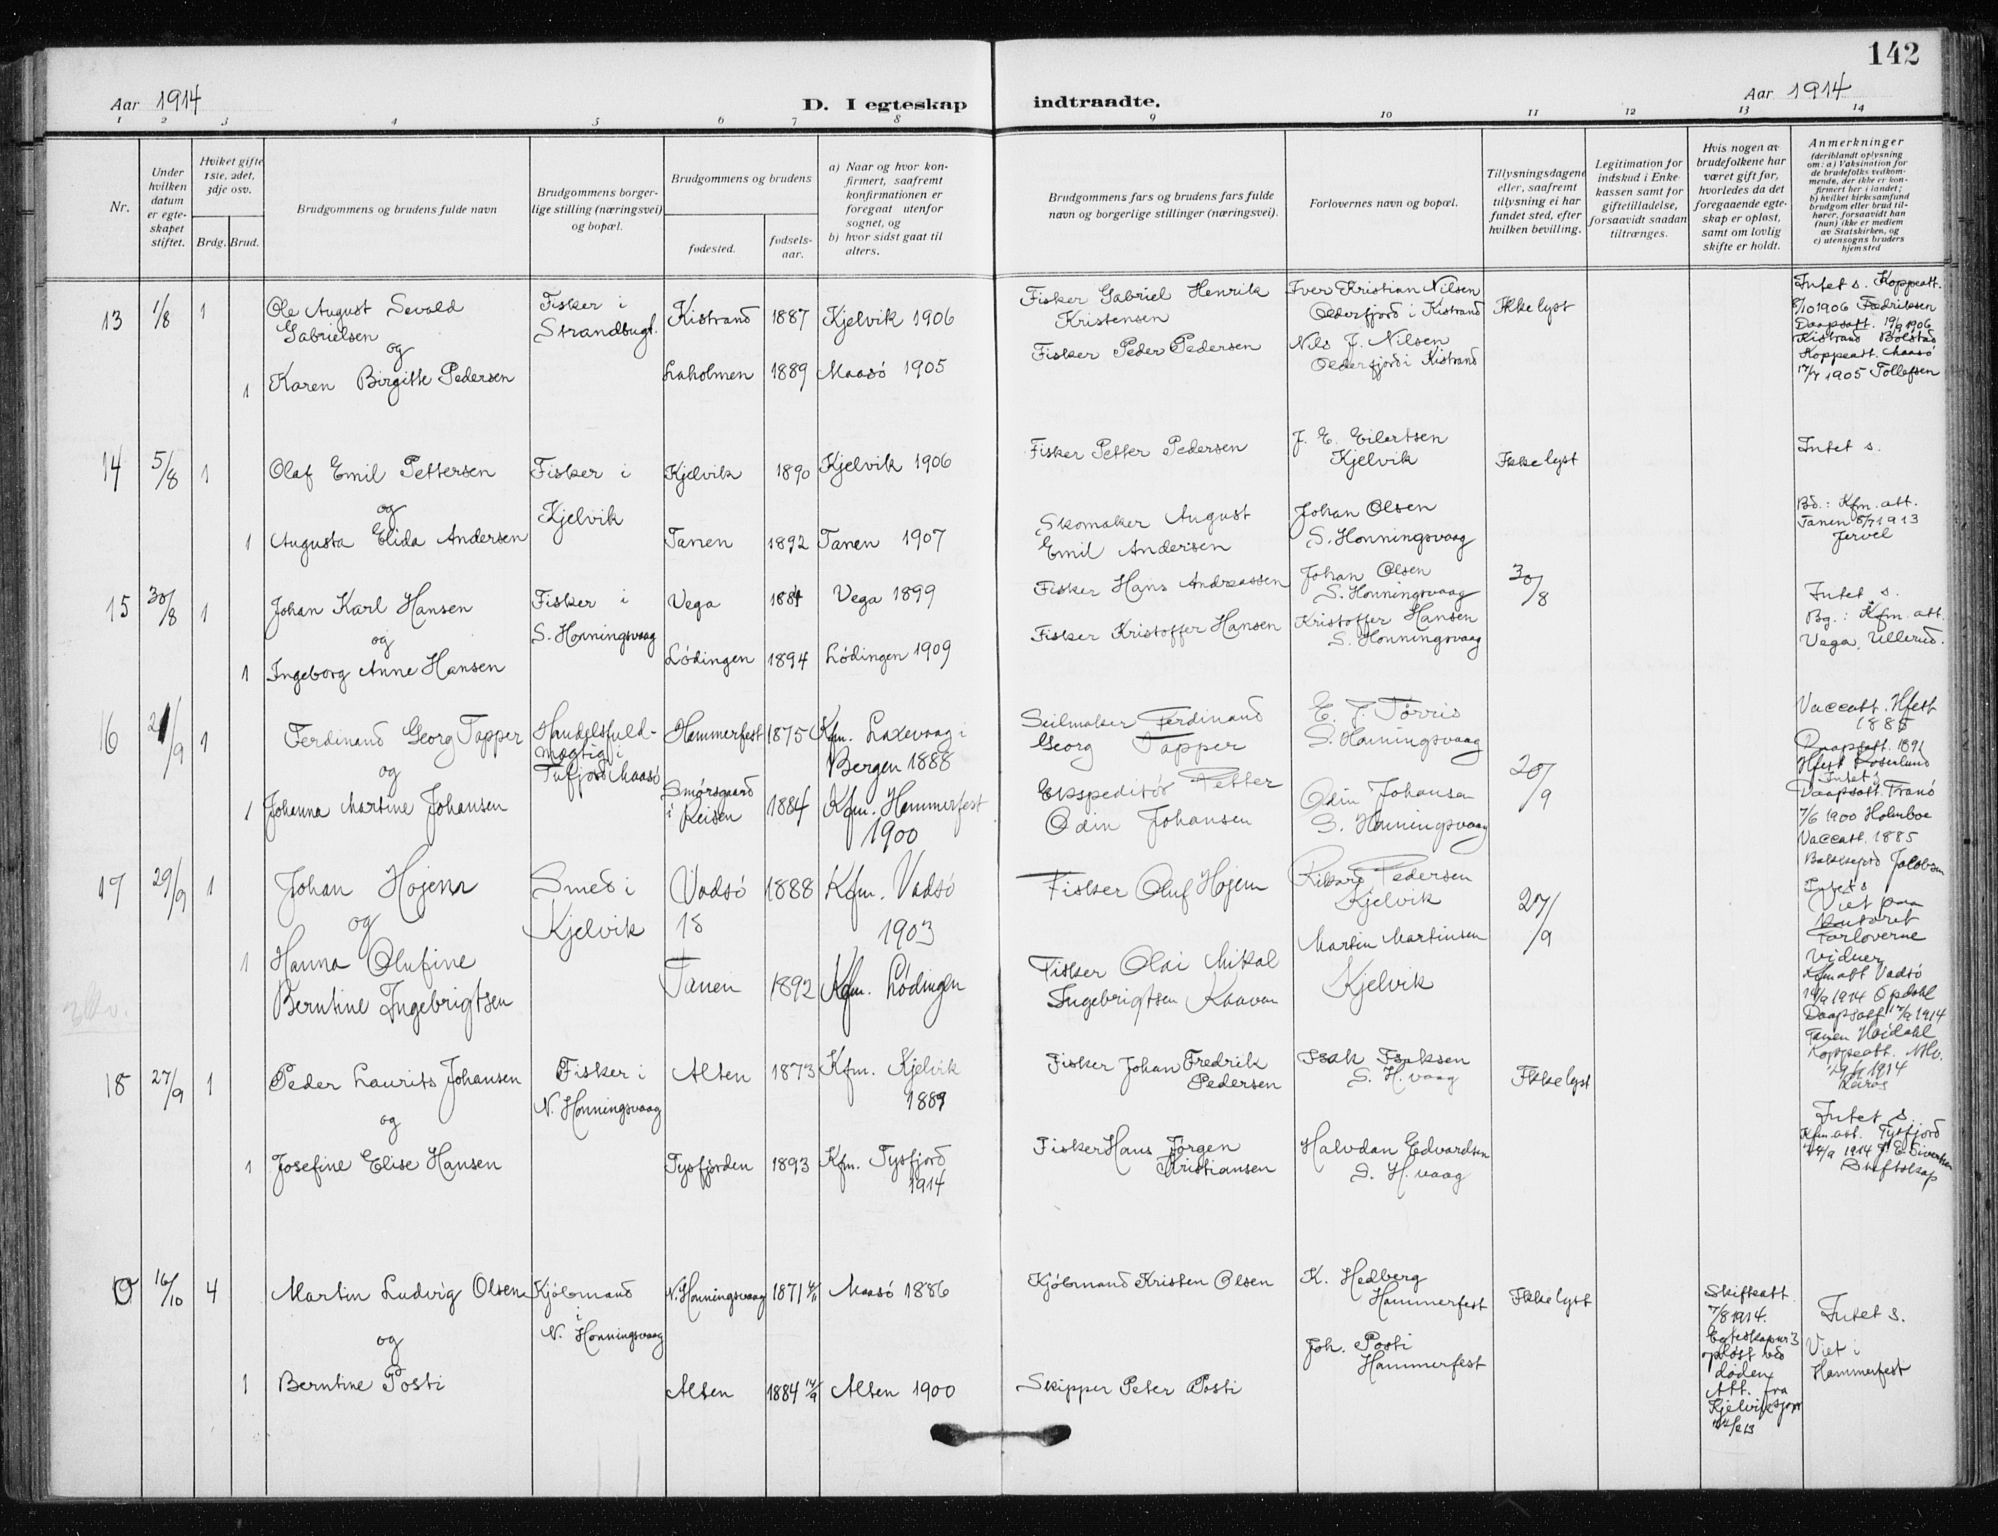 142
Aar 1914
D. I egteskap indtraadte.
Aar 1914
1 2 3 4 5 6 7 8 9 10 11 12 13 14
Nr.
Under hvilken datum er egteskapet stiftet.
Hviket gifte 1ste, 2det, 3dje osv.
Brdg. Brud.
Brudgommens og brudens fulde navn
Brudgommens borgerlige stilling (næringsvei) og bopæl.
Brudgommens og brudens
fødested.
fødselsaar.
a) Naar og hvor konfirmert, saafremt konfirmationen er foregaat utenfor sognet, og
b) hvor sidst gaat til alters.
Brudgommens fars og brudens fars fulde navn og borgerlige stillinger (næringsvei).
Forlovernes navn og bopæl.
Tillysningsdagene eller, saafremt tillysning ei har fundet sted, efter hvilken bevilling.
Legitimation for indskud i Enkekassen samt for giftetilladelse, forsaavidt saadan tiltrænges.
Hvis nogen av brudefolkene har været gift før, hvorledes da det foregaaende egteskap er opløst, samt om lovlig skifte er holdt.
Anmerkninger
(deriblandt oplysning om: a) Vaksination for de brudefolks vedkommende, der ikke er konfirmert her i landet; b) hvilket kirkesamfund brudgom eller brud tilhører, forsaavidt han (hun) ikke er medlem av Statskirken, og c) utensogns bruders hjemsted
13 1/8 1
Ole August Sevald
Gabrielsen
og
1 Karen Birgitte Pedersen
Fisker i
Strandbugt.
Kistrand 1887 Kjelvik 1906
Laholmen 1889 Maasö 1905
Fisker Gabriel Henrik
Kristensen
Fisker Peder Pedersen
Iver Kristian Nilsen
Olderfjord i Kistrand
Nils J. Nilsen
Olderfjord i Kistrand
Ikke lyst
Intet s. Koppeatt.
8/10 1906 Fredriksen
Daapsatt. 19/9 1906
Kistrand Bolstad
Koppeatt. Maasö
17/7 1905 Tollefsen
14 5/8 1
Olaf Emil Pettersen
og
1 Augusta Elida Andersen
Fisker i
Kjelvik
Kjelvik 1890 Kjelvik 1906
Tanen 1892 Tanen 1907
Fisker Petter Pedersen
Skomaker August
Emil Andersen
J. E. Eilertsen
Kjelvik
Johan Olsen
S. Honningsvaag
Ikke lyst
Intet s.
Bd.: Kfm. att.
Tanen 8/7 1913
Jervel
15 30/8 1
Johan Karl Hansen
og
1 Ingeborg Anne Hansen
Fisker i
S. Honningsvaag
Vega 1884 Vega 1899
Lödingen 1894 Lödingen 1909
Fisker Hans Andreassen
Fisker Kristoffer Hansen
Johan Olsen
S. Honningsvaag
Kristoffer Hansen
S. Honningsvaag
30/8
Intet s.
Bg.: Kfm. att.
Vega, Ullerud.
16 21/9 1
Ferdinand Georg Tapper
og
1 Johanna Martine Johansen
Handelsfuld-
mægtig i
Tufjord Maasö
Hammerfest 1875 Kfm. Laxevaag i
Bergen 1888
Smörsgaard
i Reisen 1884 Kfm. Hammerfest
1900
Seilmaker Ferdinand
Georg Tapper
Ekspeditör Petter
Odin Johansen
E. J. Törris
S. Honningsvaag
Odin Johansen
S. Honningsvaag
20/9
Vaccatt. Hfest
1885
Daapsatt. 1891
Hfest Rosenlund
Intet s
Daapsatt. Tranö
7/6 1900 Holmboe
Vaccatt. 1885
Balsfjord Jacobsen
17 29/9 1
Johan Hojem
og
1 Hanna Olufine
Berntine Ingebrigtsen
Smed i
Kjelvik
Vadsö 1888 Kfm. Vadsö
18
1903
Tanen 1892 Kfm. Lödingen
Fisker Oluf Hojem
Fisker Olai Mikal
Ingebrigtsen Kaaven
Rikard Pedersen
Kjelvik
Martin Martinsen
Kjelvik
27/9
Intet s
Viet paa
kontoret
Forloverne
vidner
Kfm att Vadsö
14/9 1914 Opdahl
Daapsatt 17/9 1914
Tanen Hoidahl
Koppeatt.
19/9 1914
18 27/9 1
Peder Laurits Johansen
og
1 Josefine Elise Hansen
Fisker i
N. Honningsvaag
Alten 1873 Kfm. Kjelvik
1889
Tysfjorden 1893 Kfm. Tysfjord
1914
Fisker Johan Fredrik
Pedersen
Fisker Hans Jörgen
Kristiansen
Isak Isaksen
S. H. vaag
Halvdan Edvardsen
S. H. vaag
Ikke lyst
Intet s.
Kfm att. Tysfjord
1914 Sivertsen
0 16/10 4
Martin Ludvig Olsen
og
1 Berntine Posti
Kjöbmand
i
N. Honningsvaag
N. Honningsvaag 1871 Maasö 1886
Alten 1884 14/9 Alten 1900
Kjöbmand Kristen Olsen
Skipper Peter Posti
K. Hedberg
Hammerfest
Joh. Posti
Hammerfest
Ikke lyst
Skifteatt.
7/8 1914.
Egteskap nr 3
oplöst ved
döden
Att. fra
Kjelvik
Intet s.
Viet i
Hammerfest